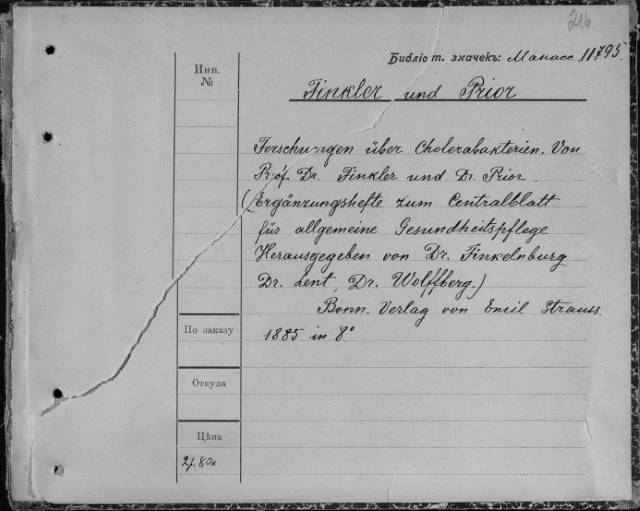 216
Библіот. значекъ: Манасс. 11795.
Инв.
№
Finkler und Prior
Forschungen über Cholerabakterien. Von
Prof. Dr. Finkler und Dr. Prior.
(Ergänzungshefte zum Centralblatt
für allgemeine Gesundheitspflege
Herausgegeben von Dr. Finkelnburg
Dr. Lent, Dr. Wolffberg.)
Bonn. Verlag von Emil Strauss.
1885 in 8°
По заказу
Откуда
Цѣна